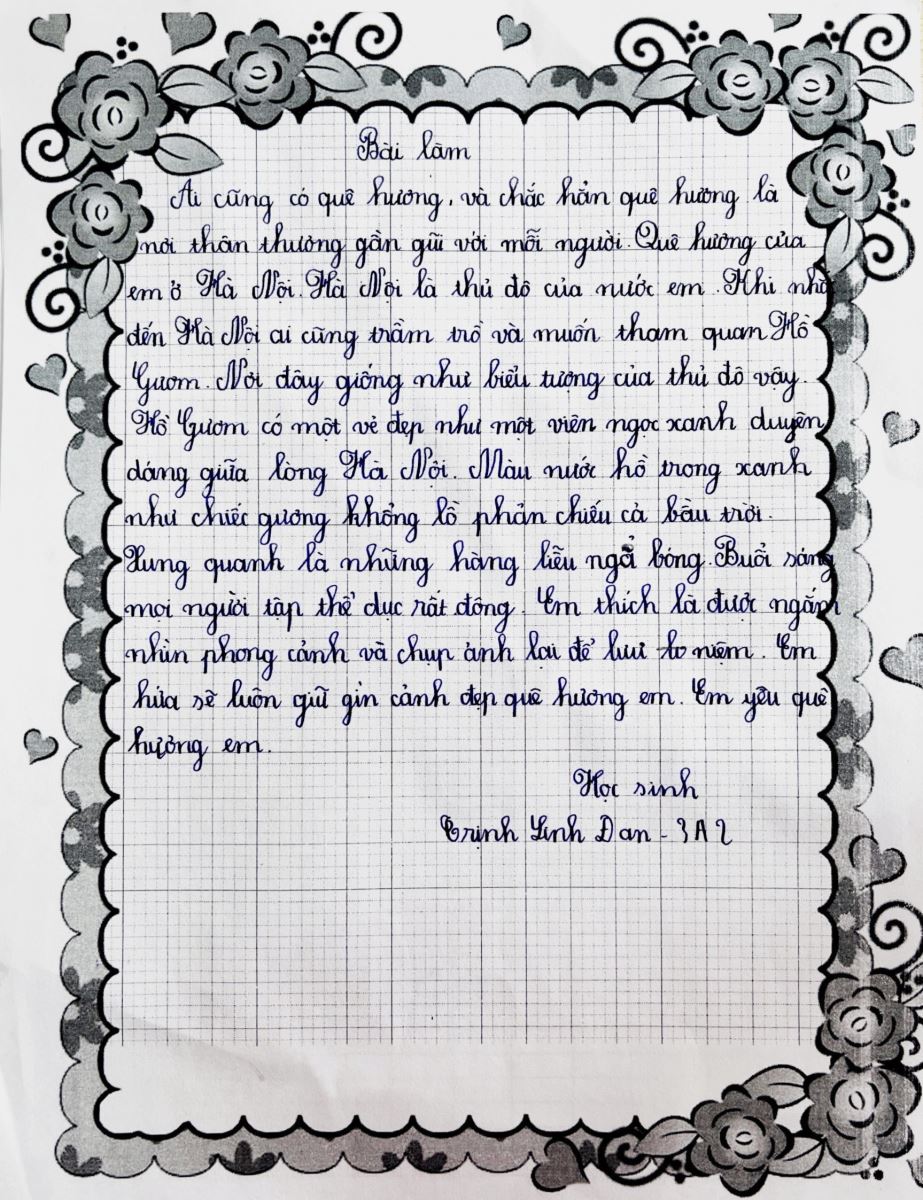 Bài làm
Ai cũng có quê hương, và chắc hẳn quê hương là
nơi thân thương gần gũi với mỗi người. Quê hương của
em ở Hà Nội. Hà Nội là thủ đô của nước em. Khi nhớ
đến Hà Nội ai cũng trầm trồ và muốn tham quan Hồ
Gươm. Nơi đây giống như biểu tượng của thủ đô vậy.
Hồ Gươm có một vẻ đẹp như một viên ngọc xanh duyên
dáng giữa lòng Hà Nội. Màu nước hồ trong xanh
như chiếc gương khổng lồ phản chiếu cả bầu trời.
Xung quanh là những hàng liễu ngả bóng. Buổi sáng
mọi người tập thể dục rất đông. Em thích là được ngắm
nhìn phong cảnh và chụp ảnh lại để lưu niệm. Em
hứa sẽ luôn giữ gìn cảnh đẹp quê hương em. Em yêu quê
hương em.
Học sinh
Trịnh Linh Đan - 3A2